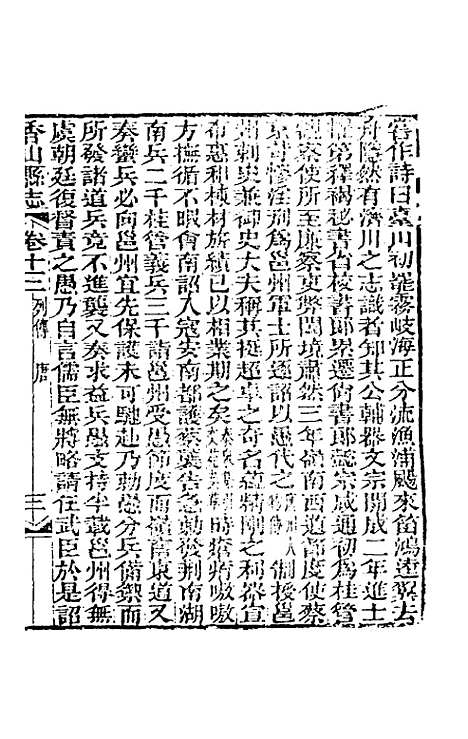 嘗作詩曰臺川初罷霧岐海正分流漁浦颺來笛鴻逵翼去
舟隱然有濟川之志識者知其公輔器文宗開成二年進士
第釋褐祕書省校書郎累遷尚書郎懿宗咸通初為桂管
觀察使所至廉察吏弊閭境肅然三年嶺南西道節度使蔡
京 慘淫刑為邕州軍士所逐詔以愚代之 授邕
州刺史兼御史大夫稱其挺超卓之奇名蘊精剛之利器宜
布惠和 材方績已以相業期之矣 時瘡痏嗷嗷
方撫循不暇會南詔入寇安南都護蔡襲告急勅發荆南湖
南兵二千桂管義兵三千詣邕州受愚節度而嶺南東道又
奏蠻兵必向邕州宜先保護未可馳赴乃勅愚分兵備禦而
所發諸道兵竟不進襲又奏求益兵愚支持半載邕州得無
虞朝廷復督責之愚乃自言儒臣無將略請任武臣於是詔
香山縣志 卷十三 列傳 唐 三